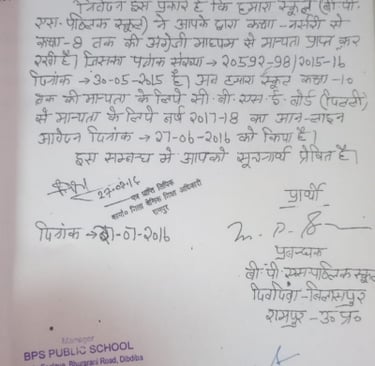 निवेदन इस प्रकार है कि हमारा स्कूल (बी०पी०
एस० पब्लिक स्कूल) ने आपके द्वारा कक्षा-नर्सरी से
कक्षा-8 तक की अंग्रेजी माध्यम से मान्यता प्राप्त कर
रखी है। जिसका पत्रांक संख्या → 20592-98/2015-16
दिनांक → 30-05-2015 है। अब हमारा स्कूल कक्षा-10
तक की मान्यता के लिये सी० बी० एस० ई० बोर्ड (दिल्ली)
से मान्यता के लिये वर्ष 2017-18 का आन-लाइन
आवेदन दिनांक → 27-06-2016 को किया है।
इस सम्बन्ध में आपको सूचनार्थ प्रेषित है।
27-07-16
पत्र प्राप्ति लिपिक
कार्या० जिला बेसिक शिक्षा अधिकारी
रामपुर
प्रार्थी
दिनांक → 21-07-2016
प्रबन्धक
बी० पी० एस० पब्लिक स्कूल
दिबदिबा-बिलासपुर
रामपुर-उ० प्र०
Manager
BPS PUBLIC SCHOOL
Road, Dibdiba